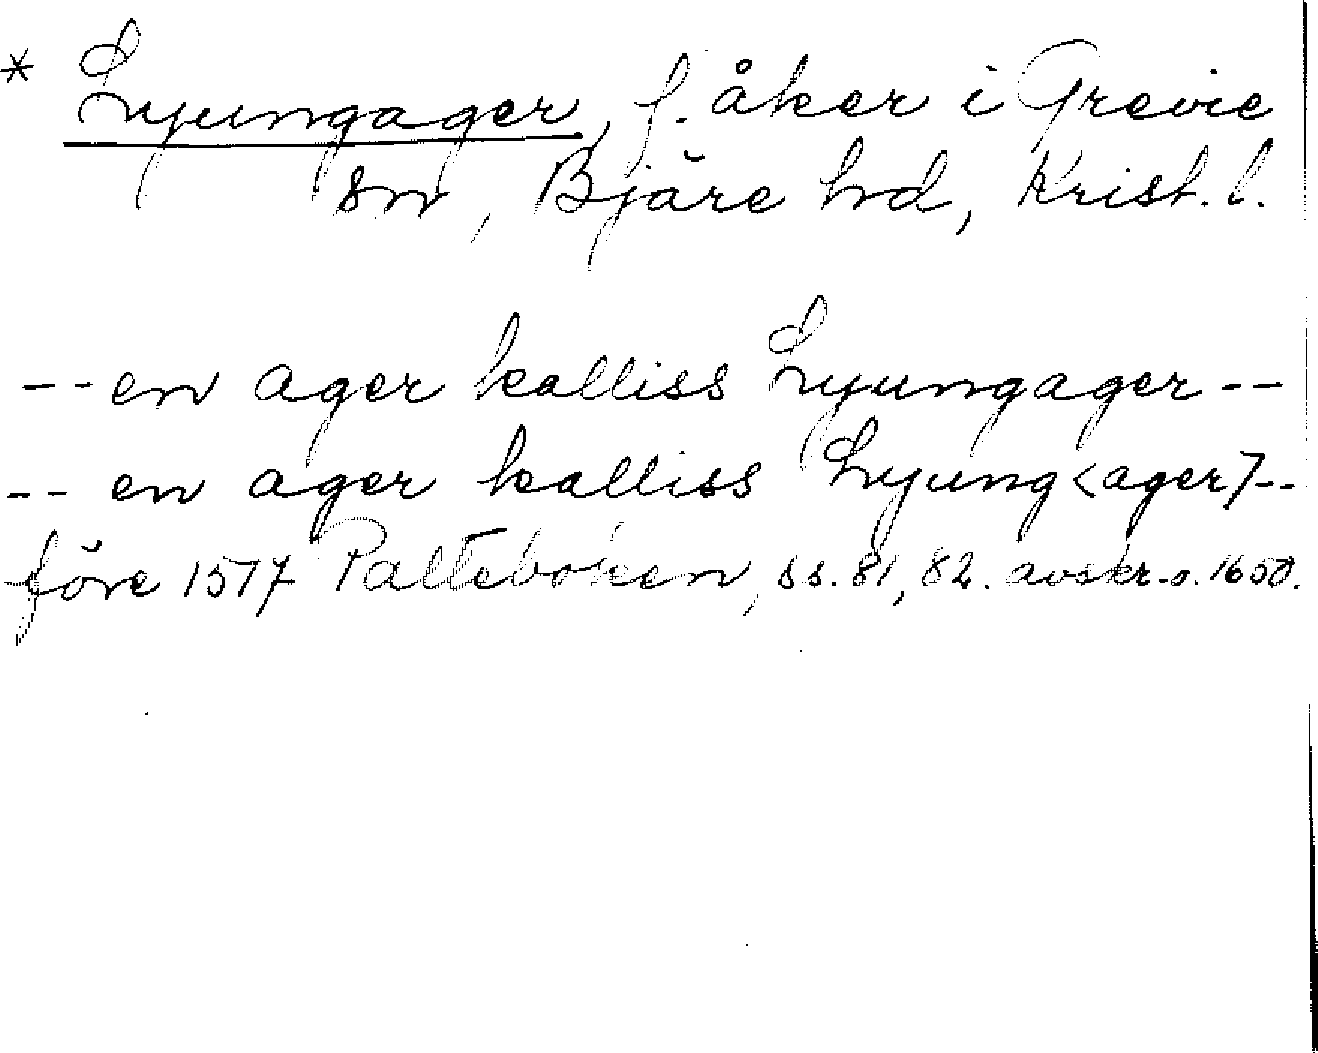 * Lyungager, f. åker i Grevie
sn, Bjäre hd, Krist. l.
-- en ager kalliss Lyungager --
-- en ager kalliss Lyung<ager> --
före 1517 Palteboken, ss. 81, 82. avskr. o. 1650.